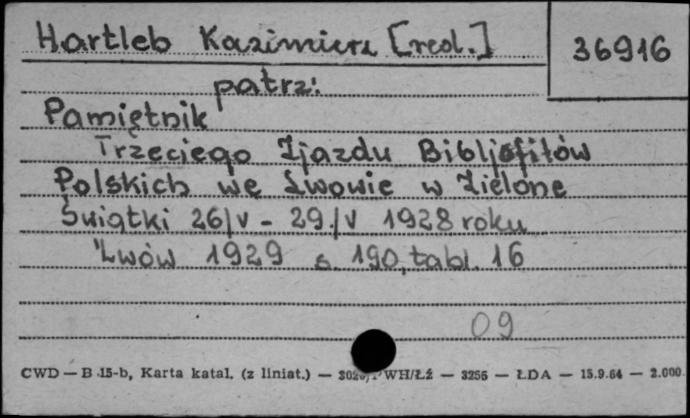 Hartleb Kazimierz [red.]
36916
patrz:
Pamiętnik
Trzeciego Zjazdu Bibljofilów
Polskich we Lwowie w Zielone
Świątki 26/V - 29/V 1928 roku
Lwów 1929 s. 190, tabl. 16
09
CWD — B 15-b, Karta katal. (z liniat.) — WH/Łż — 3256 — ŁDA — 15.9.64 — 2.000